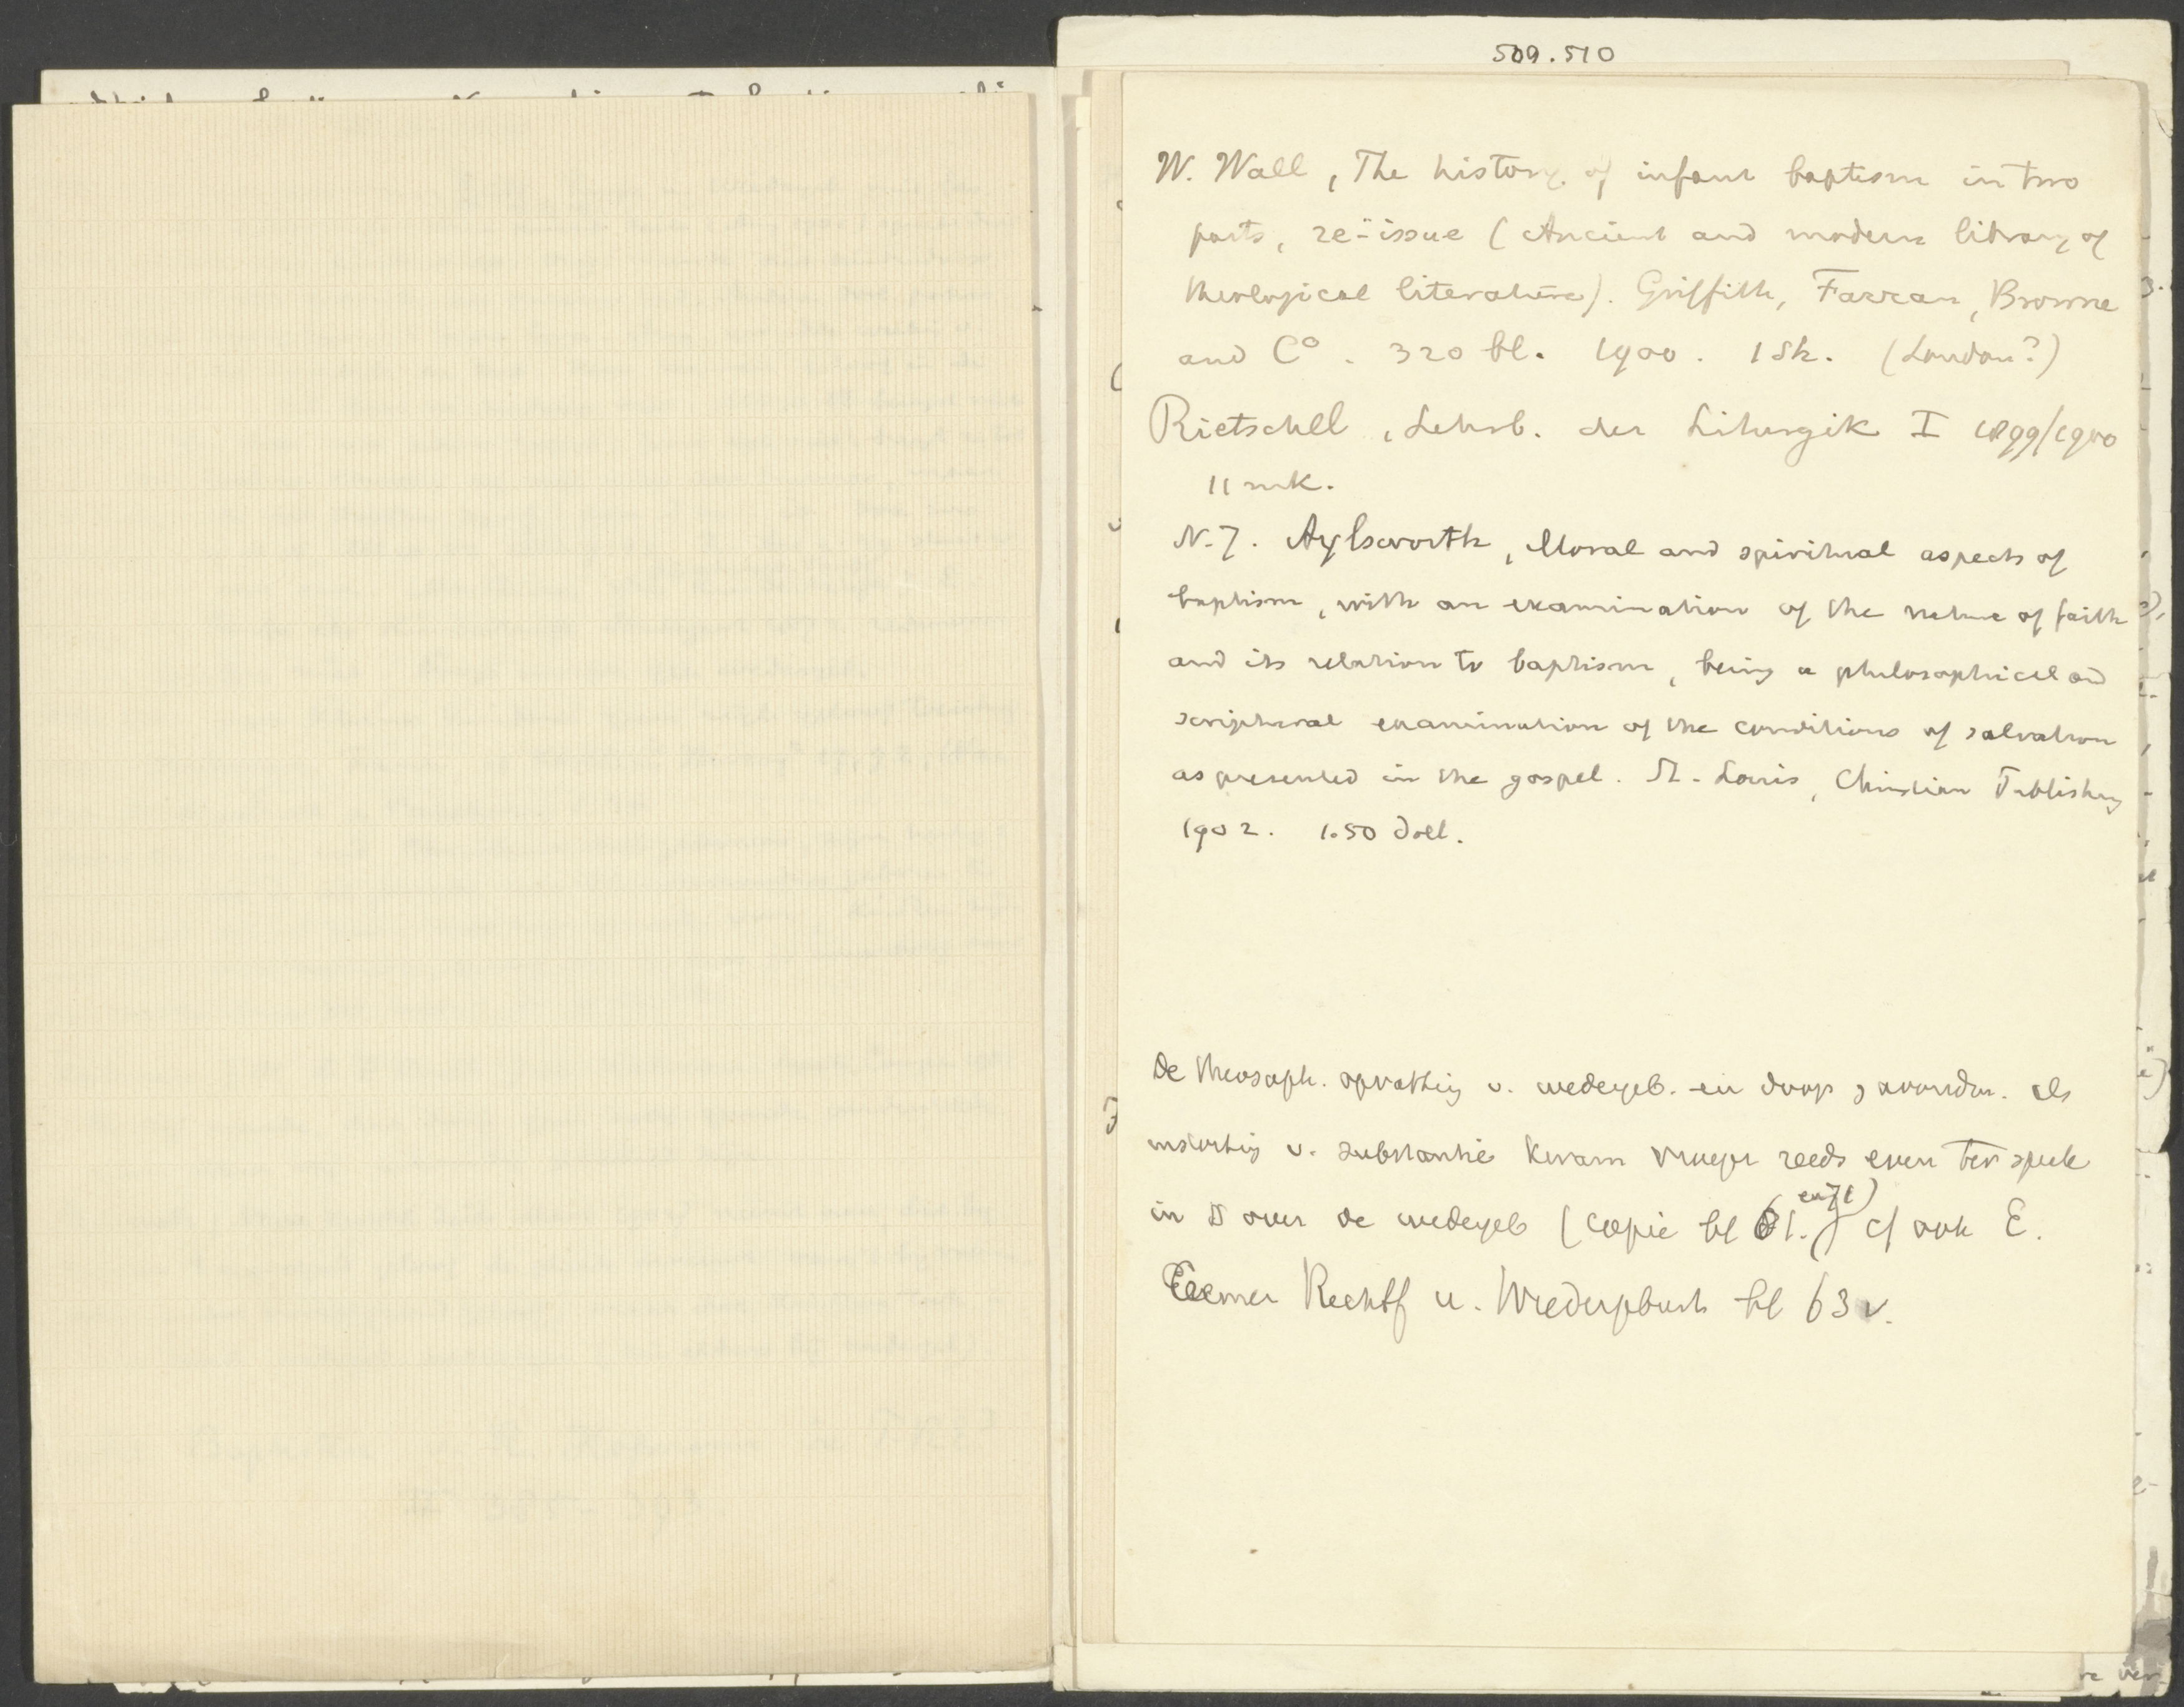 509.510
W. Wall, The history of infant baptism in two
parts, re-issue (Ancient and modern library of
theological literature). Griffith, Farran, Browne
and Co. 320 bl. 1900. 1 sh. (London?)
Rietschel, Lehrb. der Liturgik I 1899/1900
11 mk.
N. J. Aylsworth, Moral and spiritual aspects of
baptism, with an examination of the nature of faith
and its relation to baptism, being a philosophical and
scriptural examination of the conditions of salvation
as presented in the gospel. St. Louis, Christian Publishing
1902. 1.50 doll.
De theosoph. opvatting v. wedergeb. en doop, avondm. als
instorting v. substantie kwam vroeger reeds even ter sprake
in § over de wedergeb (copie bl 61.) cf ook E.
Cremer Rechtf u. Wiedergeburt bl 63 v.